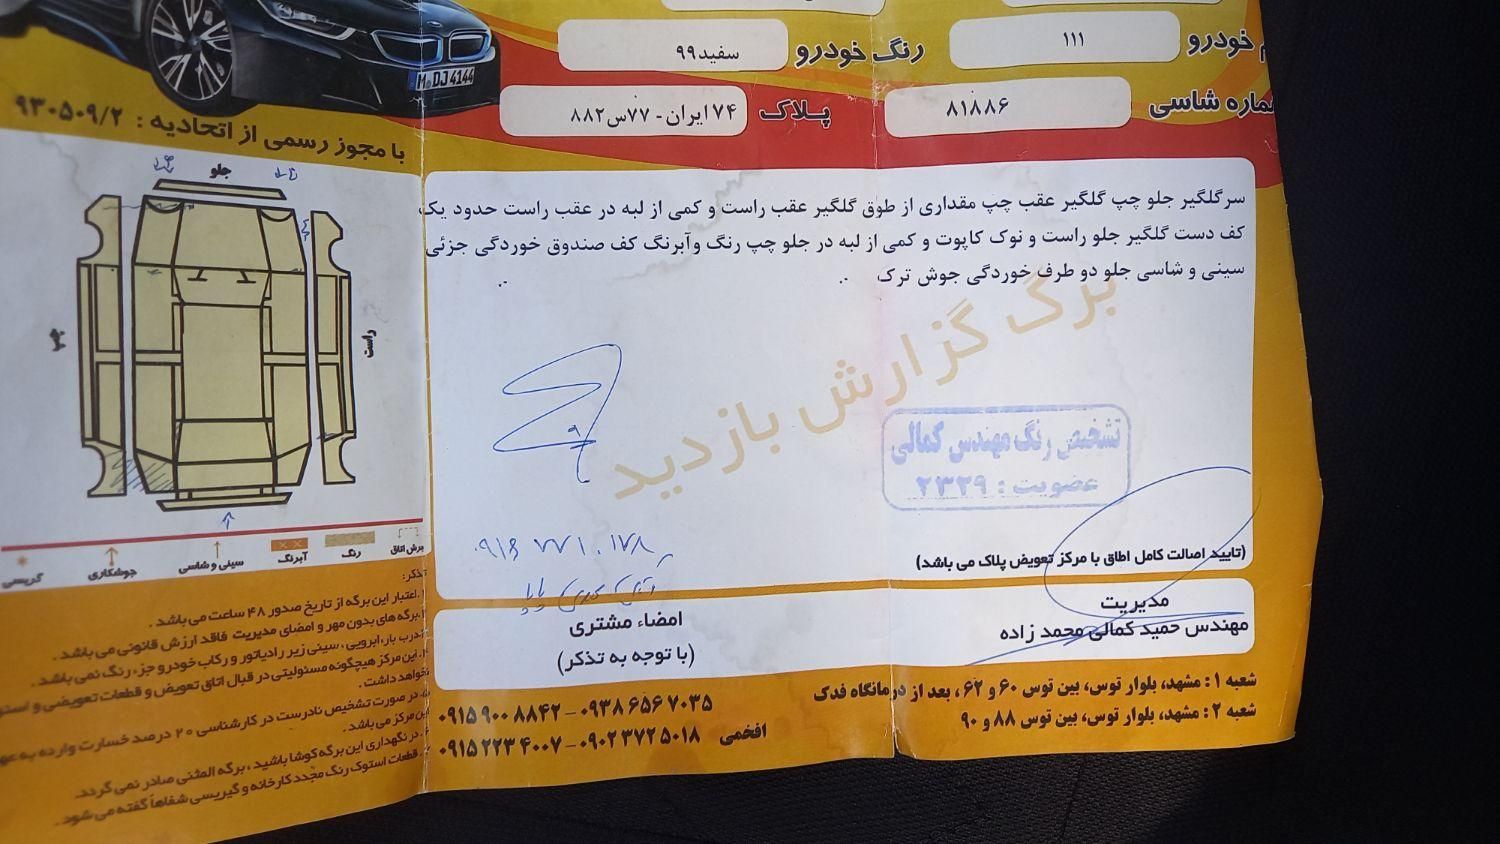 م خودرو
۱۱۱
رنگ خودرو
سفید۹۹
ماره شاسی
۸۱۸۸۶
پلاک
۷۴ ایران - ۷۷س۸۸۲
M DJ 4144
با مجوز رسمی از اتحادیه : ۹۳۰۵۰۹/۲
جلو
چپ
راست
سرگلگیر جلو چپ گلگیر عقب چپ مقداری از طوق گلگیر عقب راست و کمی از لبه در عقب راست حدود یک
کف دست گلگیر جلو راست و نوک کاپوت و کمی از لبه در جلو چپ رنگ وآبرنگ کف صندوق خوردگی جزئی
سینی و شاسی جلو دو طرف خوردگی جوش ترک .. ..
برگ گزارش بازدید
تشخیص رنگ مهندس کمالی
عضویت : ۲۳۲۹
(تایید اصالت کامل اطاق با مرکز تعویض پلاک می باشد)
مدیریت
مهندس حمید کمالی محمد زاده
امضاء مشتری
(با توجه به تذکر)
برش اتاق
رنگ
آبرنگ
سینی و شاسی
جوشکاری
گریسی
تذکر:
۱.اعتبار این برگه از تاریخ صدور ۴۸ ساعت می باشد .
۲.برگه های بدون مهر و امضای مدیریت فاقد ارزش قانونی می باشد .
درب بار، ابرویی ، سینی زیر رادیاتور و رکاب خودرو جزء رنگ نمی باشد .
۴. این مرکز هیچگونه مسئولیتی در قبال اتاق تعویض و قطعات تعویضی و استو
نخواهد داشت .
۵. در صورت تشخیص نادرست در کارشناسی ۲۰ درصد خسارت وارده به عه
این مرکز می باشد.
۶. در نگهداری این برگه کوشا باشید ، برگه المثنی صادر نمی گردد.
قطعات استوک رنگ مجدد کارخانه و گیریسی شفاهاً گفته می شود .
شعبه ۱ : مشهد، بلوار توس، بین توس ۶۰ و ۶۲ ، بعد از درمانگاه فدک
شعبه ۲ : مشهد، بلوار توس، بین توس ۸۸ و ۹۰
۰۹۱۵ ۹۰۰ ۸۸۴۲ - ۰۹۳۸ ۶۵۶ ۷۰۳۵
افخمی ۰۹۱۵ ۲۲۳ ۴۰۰۷ - ۰۹۰۲ ۳۷۲ ۵۰۱۸